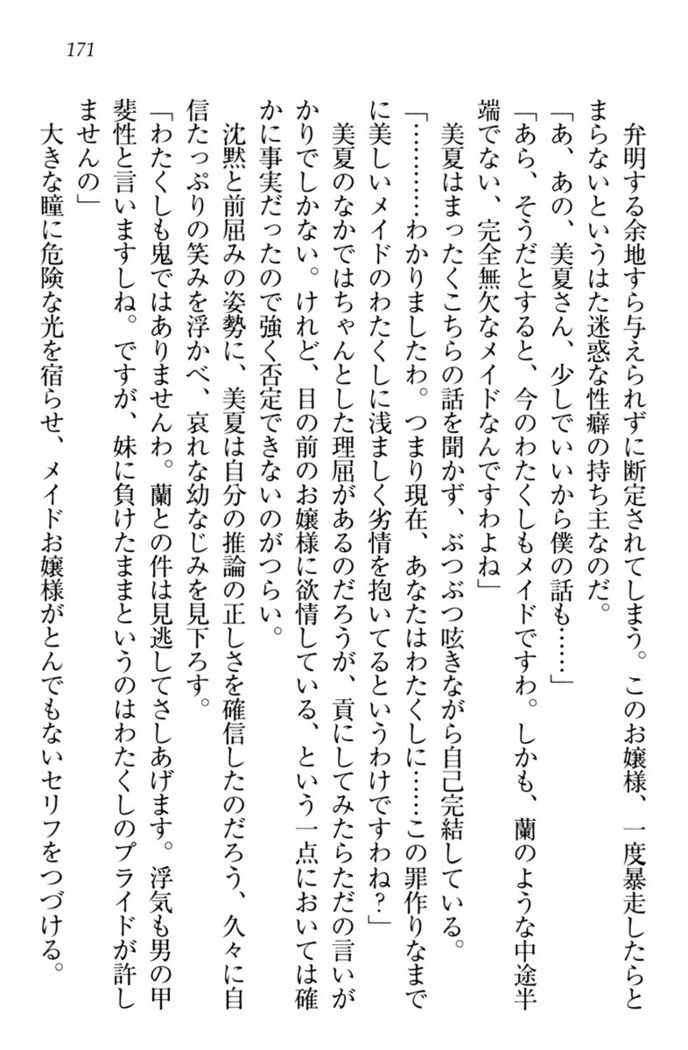 171
弁明する余地すら与えられずに断定されてしまう。このお嬢様、一度暴走したらと
まらないというはた迷惑な性癖の持ち主なのだ。
「あ、あの、美夏さん、少しでいいから僕の話も……」
「あら、そうだとすると、今のわたくしもメイドですわ。しかも、蘭のような中途半
端でない、完全無欠なメイドなんですわよね」
美夏はまったくこちらの話を聞かず、ぶつぶつ呟きながら自己完結している。
「…………わかりましたわ。つまり現在、あなたはわたくしに……この罪作りなまで
に美しいメイドのわたくしに浅ましく劣情を抱いてるというわけですわね?」
美夏のなかではちゃんとした理屈があるのだろうが、貢にしてみたらただの言いが
かりでしかない。けれど、目の前のお嬢様に欲情している、という一点においては確
かに事実だったので強く否定できないのがつらい。
沈黙と前屈みの姿勢に、美夏は自分の推論の正しさを確信したのだろう、久々に自
信たっぷりの笑みを浮かべ、哀れな幼なじみを見下ろす。
「わたくしも鬼ではありませんわ。蘭との件は見逃してさしあげます。浮気も男の甲
斐性と言いますしね。ですが、妹に負けたままというのはわたくしのプライドが許し
ませんの」
大きな瞳に危険な光を宿らせ、メイドお嬢様がとんでもないセリフをつづける。